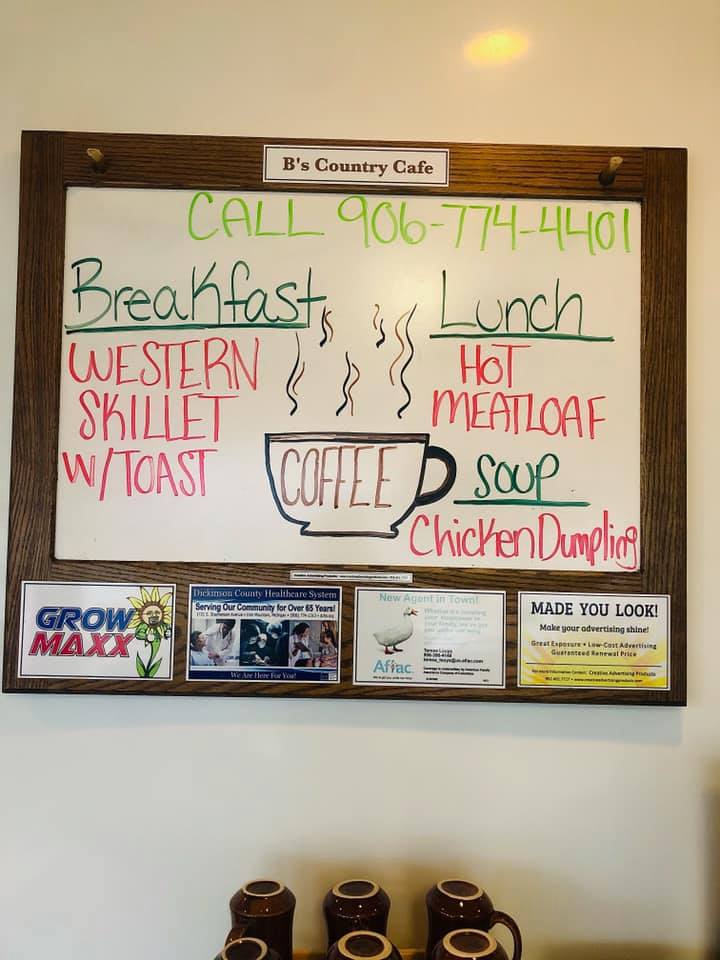 B's Country Cafe
CALL 906-774-4401
Breakfast
WESTERN
SKILLET
W/TOAST
COFFEE
Lunch
HOT
MEATLOAF
SOUP
Chicken Dumpling
GROW
MAXX
Dickinson County Healthcare System
Serving Our Community for Over 65 Years!
We Are Here For You!
New Agent in Town!
Aflac
MADE YOU LOOK!
Make your advertising shine!
Great Exposure • Low-Cost Advertising
Guaranteed Renewal Price